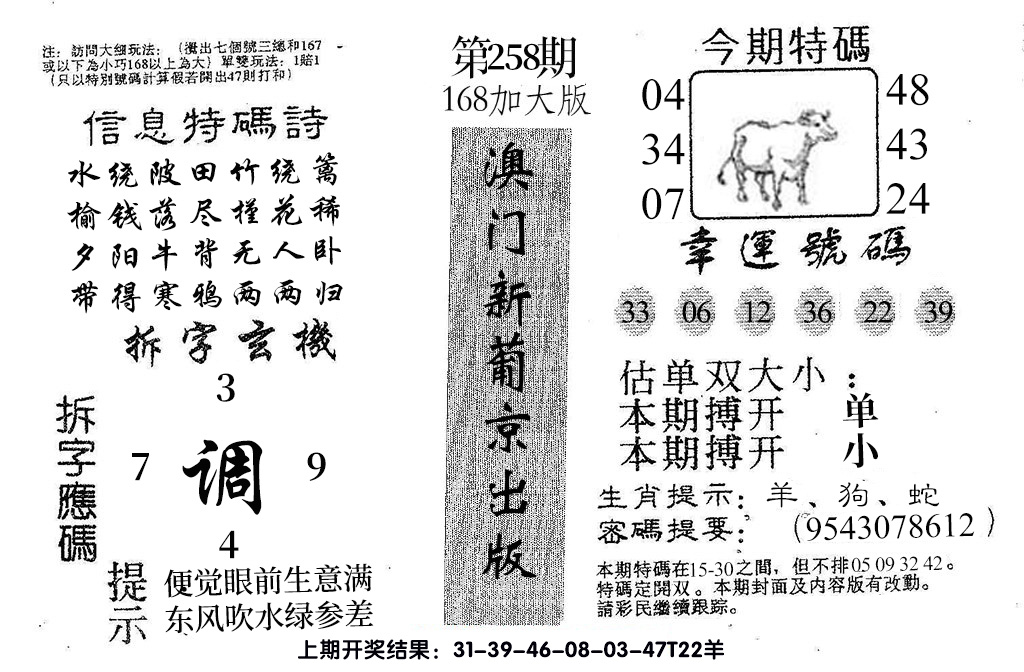 注：訪問大细玩法：（攪出七個號三總和167
或以下為小巧168以上為大）單雙玩法：1賠1
（只以特別號碼計算假若開出47則打和）
信息特碼詩
水绕陂田竹绕篱
榆钱落尽槿花稀
夕阳牛背无人卧
带得寒鸦两两归
拆字玄機
拆字應碼
3
7 调 9
4
提示
便觉眼前生意满
东风吹水绿参差
第258期
168加大版
澳门新葡京出版
今期特碼
04 48
34 43
07 24
幸運號碼
33 06 12 36 22 39
估单双大小：
本期搏开 单
本期搏开 小
生肖提示：羊、狗、蛇
密碼提要：（9543078612）
本期特碼在15-30之間，但不排05 09 32 42。
特碼定開双。本期封面及内容版有改動。
請彩民繼續跟踪。
上期开奖结果：31-39-46-08-03-47T22羊